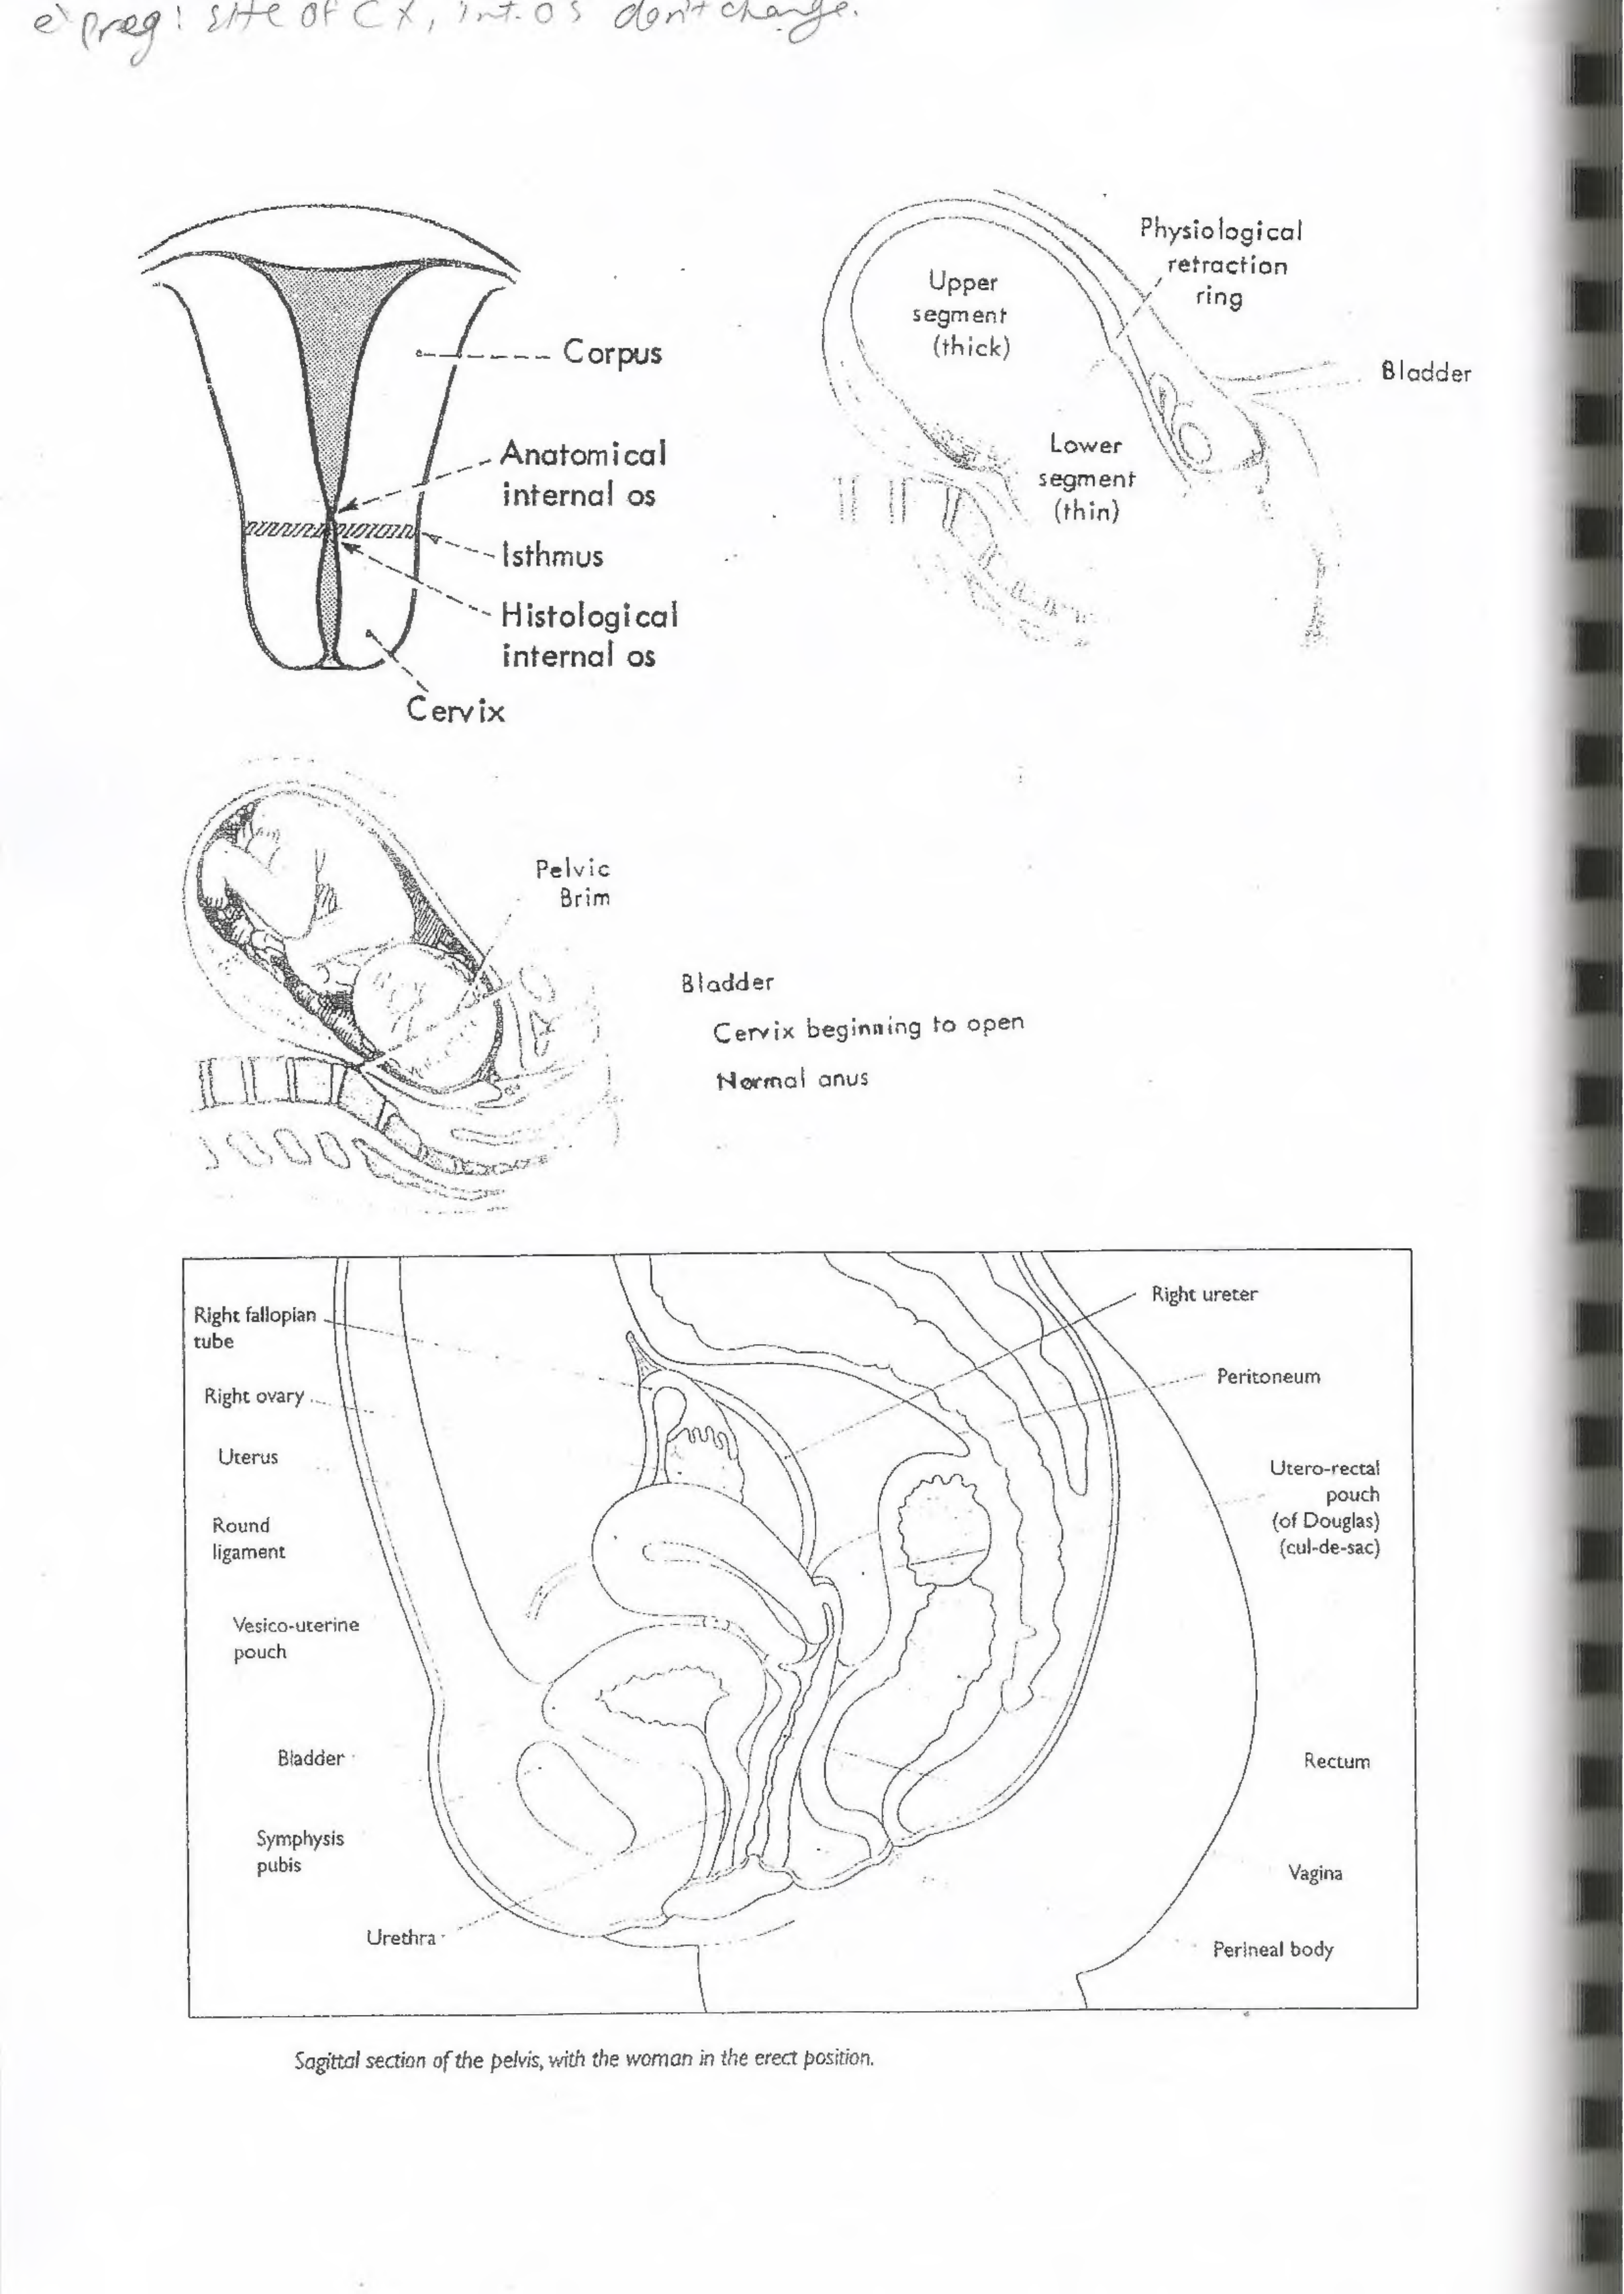 preg: site of CX, int. os don't change.
Corpus
Anatomical
internal os
Isthmus
Histological
internal os
Cervix
Physiological
retraction
ring
Upper
segment
(thick)
Bladder
Lower
segment
(thin)
Pelvic
Brim
Bladder
Cervix beginning to open
Normal anus
Right fallopian
tube
Right ovary
Uterus
Round
ligament
Vesico-uterine
pouch
Bladder
Symphysis
pubis
Urethra
Right ureter
Peritoneum
Utero-rectal
pouch
(of Douglas)
(cul-de-sac)
Rectum
Vagina
Perineal body
Sagittal section of the pelvis, with the woman in the erect position.